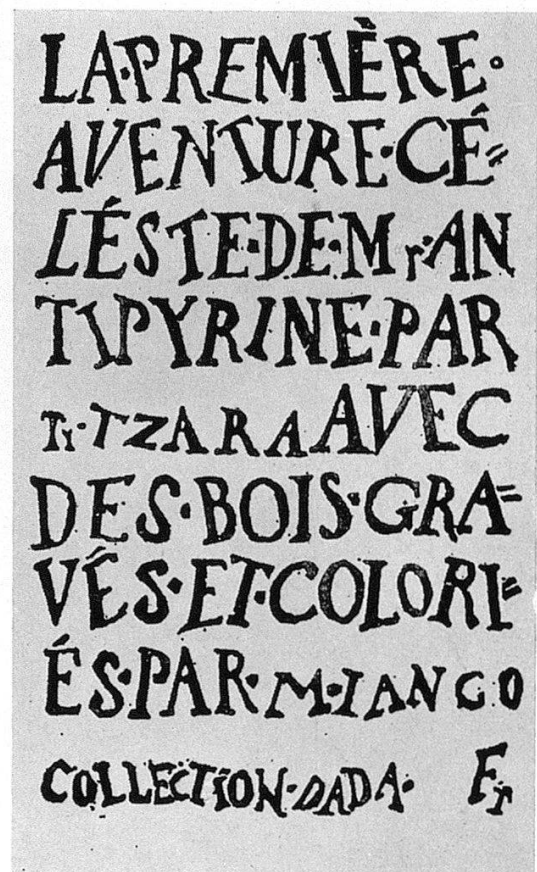 LA·PREMIÈRE·
AVENTURE·CÉ=
LÉSTE·DE·Mr·AN
TIPYRINE·PAR
Tr·TZARA AVEC
DES·BOIS·GRA=
VÉS·ET·COLORI=
ÉS·PAR·M·IANCO
COLLECTION·DADA· Fr